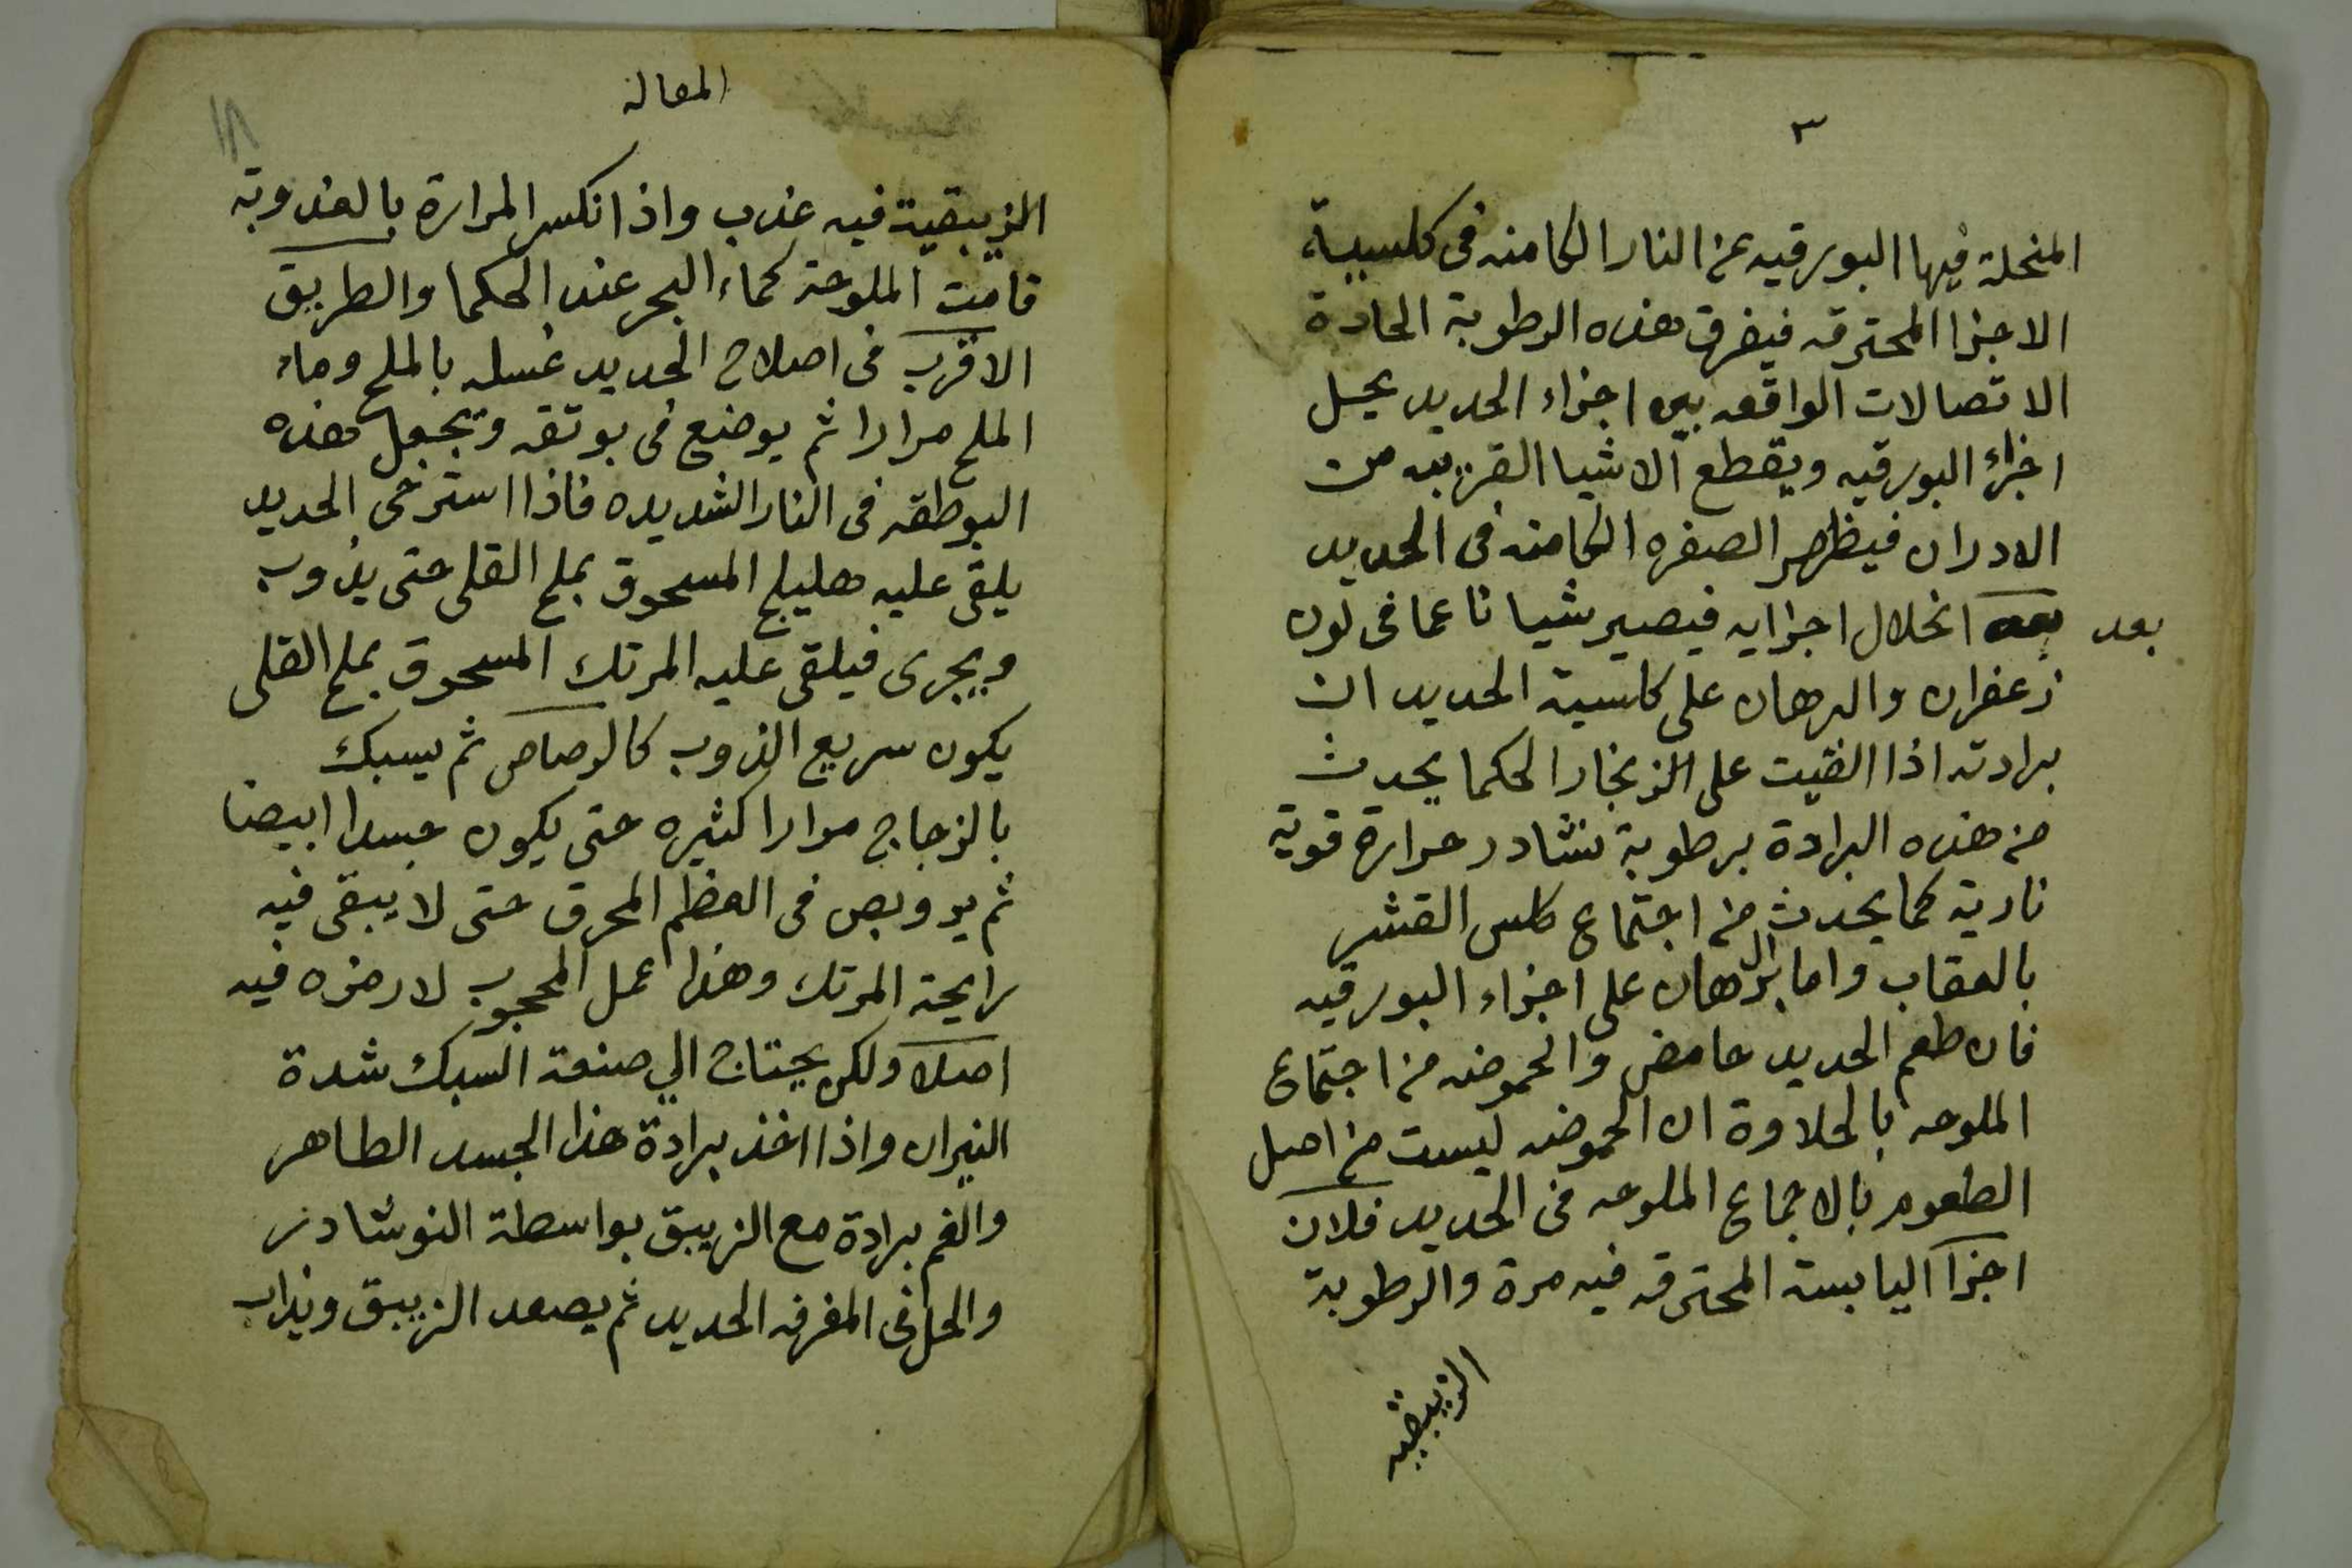 ٣
المنحلة فيها البورقيه عن النار الكامنه فى كلسيية
الاجزا المحترقه فيفرق هذه الرطوبة الحادة
الاتصالات الواقعه بين اجزاء الحديد يحل
اجزاء البورقيه ويقطع الاشيا القريبه من
الادران فيظهر الصفره الكامنه فى الحديد
بعد
بعد انحلال اجزايه فيصير شيا ناعما فى لون
زعفران والبرهان على كلسية الحديد ان
برادته اذا القيت على الزنجار الحكما يحدث
من هذه البرادة برطوبة نشادر حرارة قوية
نارية كما يحدث من اجتماع كلس القشر
بالعقاب واما البرهان على اجزاء البورقيه
فان طعم الحديد حامض والحموضه من اجتماع
الملوحه بالحلاوة ان الحموضه ليست من اصل
الطعوم بالاجماع الملوحه فى الحديد فلان
اجزا اليابسة المحترقه فيه مرة والرطوبة
الزيبقيه
المقاله
١٨
الزيبقية فيه عذب واذا انكسر المرارة بالعذوبة
قامت الملوحة كماء البحر عند الحكما والطريق
الاقرب فى اصلاح الحديد غسله بالملح وماء
الملح مرارا ثم يوضع فى بوتقه وتجعل هذه
البوطقه فى النار الشديده فاذا استرخى الحديد
يلقى عليه هليلج المسحوق بملح القلى حتى يذوب
ويجرى فيلقى عليه المرتك المسحوق بملح القلى
يكون سريع الذوب كالرصاص ثم يسبك
بالزجاج مرارا كثيره حتى يكون جسدا ابيضا
ثم يروبص فى العظم المحرق حتى لا يبقى فيه
رايحة المرتك وهذا عمل المحجوب لا رمزه فيه
اصلا ولكن يحتاج الي صنعة السبك شدة
النيران واذا اخذ برادة هذا الجسد الطاهر
والغم برادة مع الزيبق بواسطة النوشادر
والخل فى المغرفه الحديد ثم يصعد الزيبق ويذاب